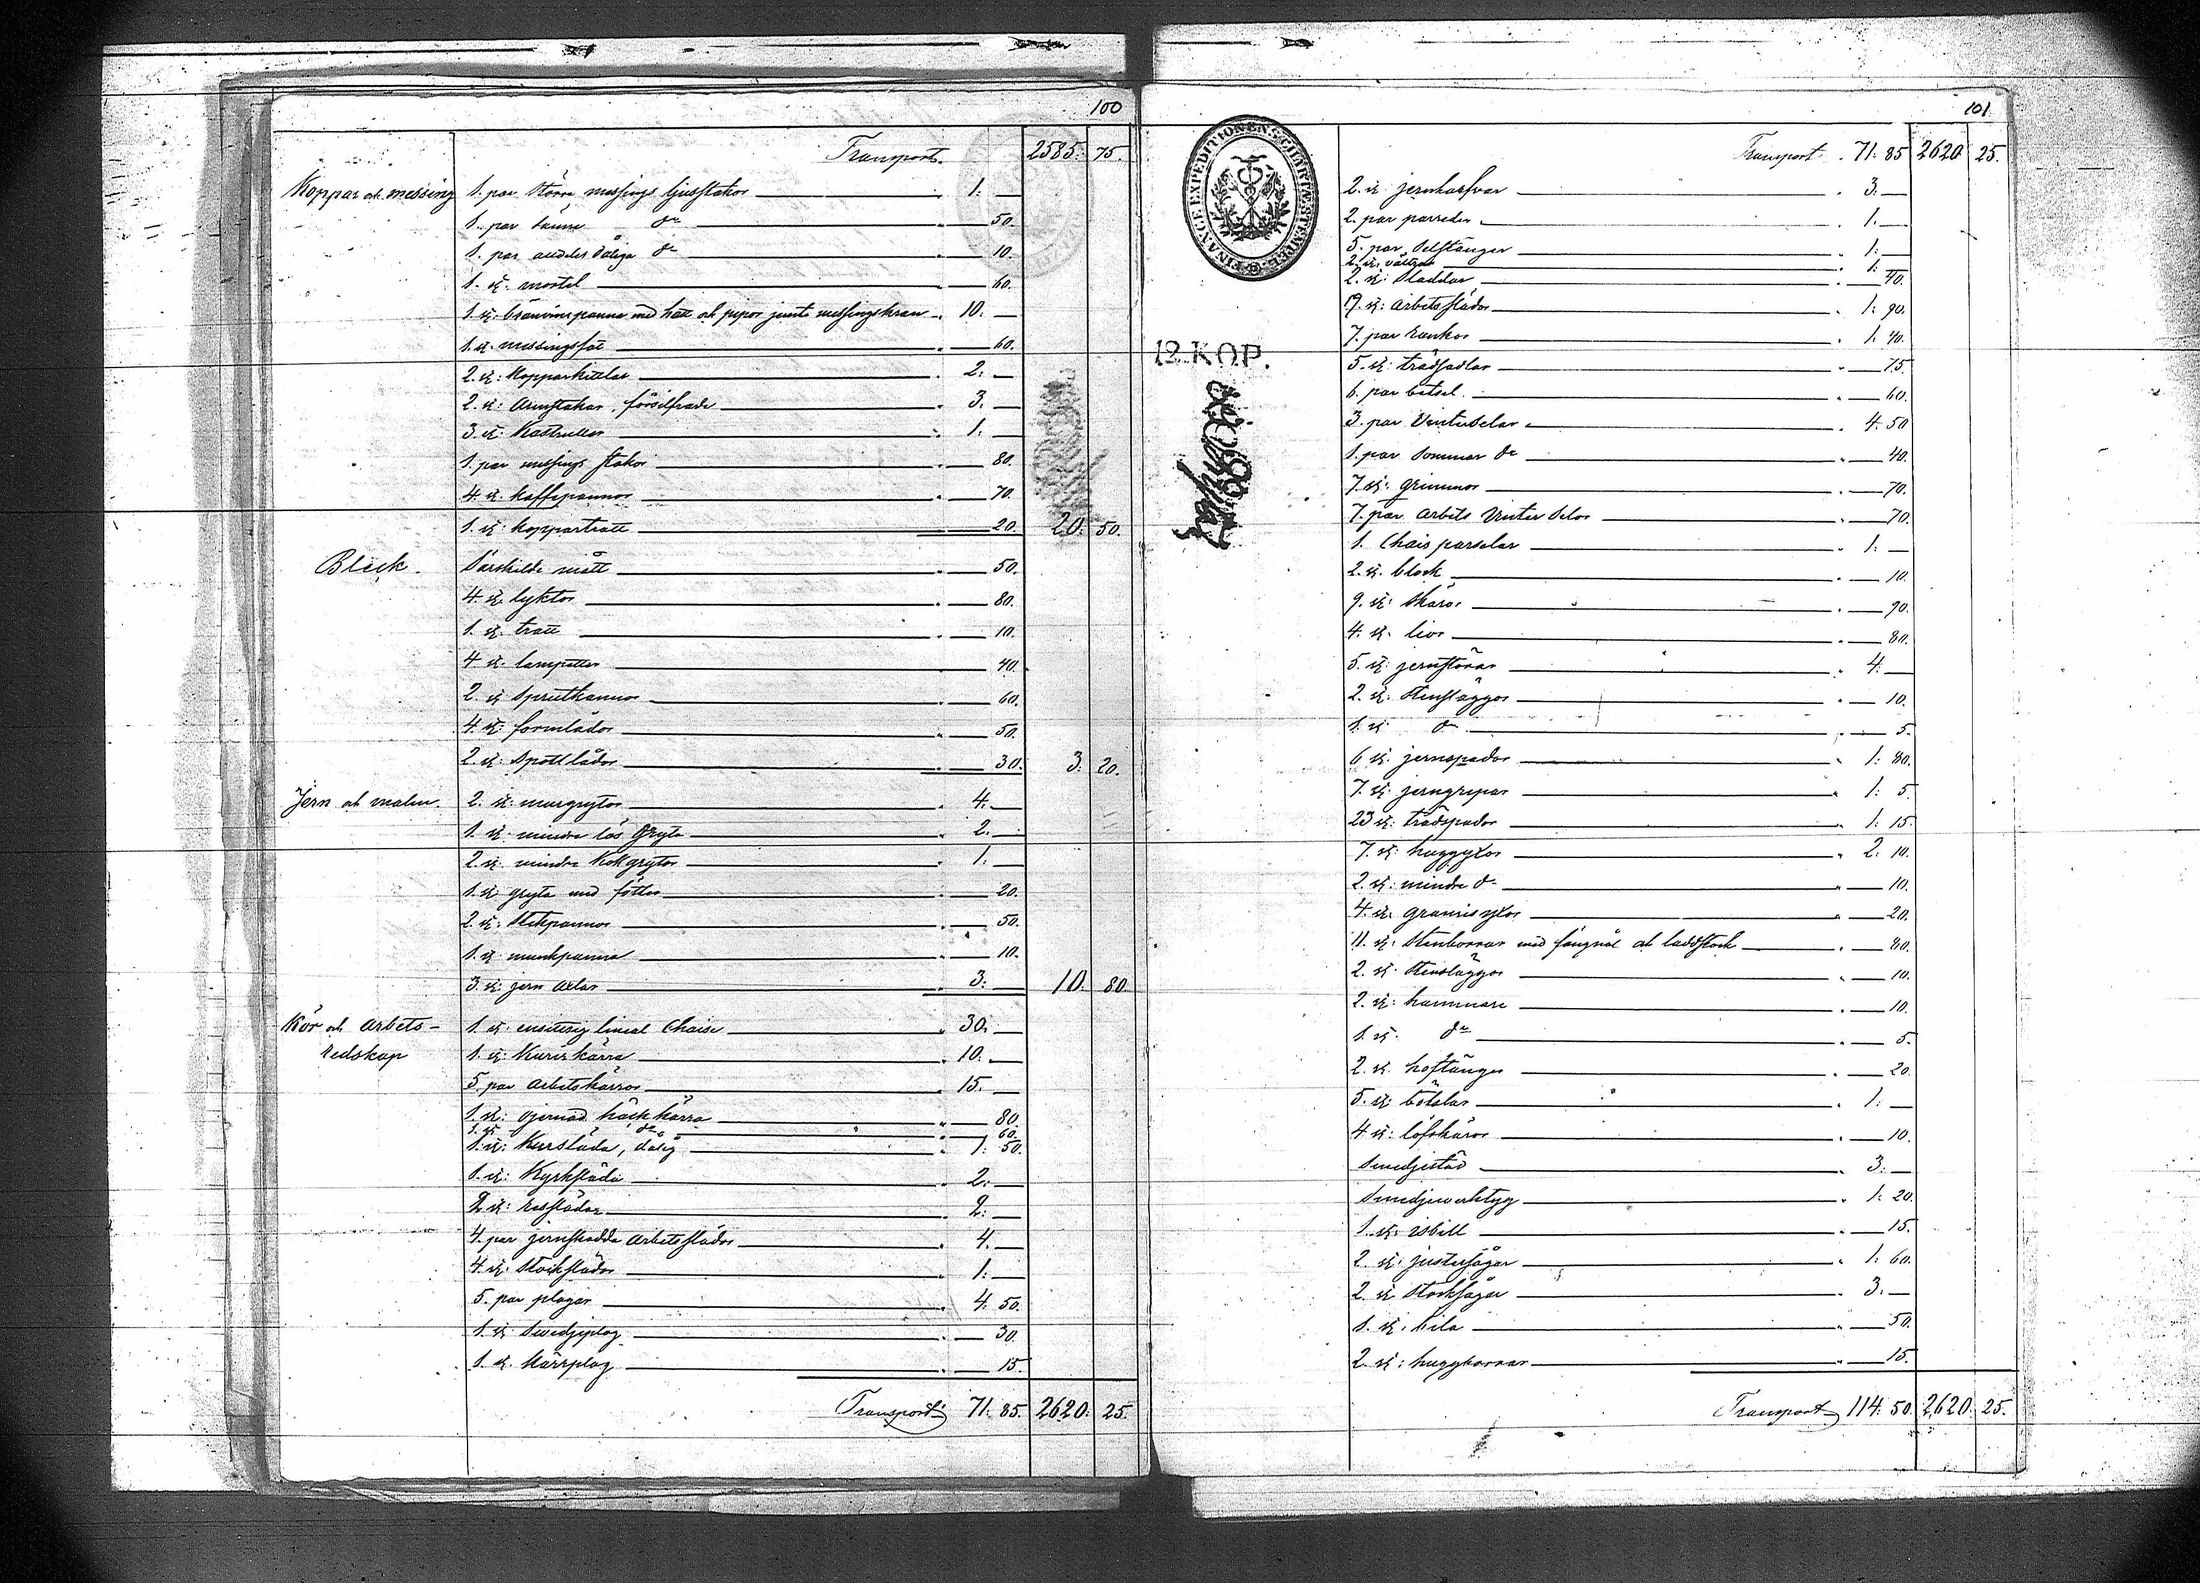 100
Transport. 2585. 75.
Koppar och messing 1. par större messings ljusstakar 1. —
1. par sämre do — 50.
1. par alldeles dåliga do — 10.
1. st. mortel — 60.
1. st. bränvinspanna med hatt och pipor jemte messingskran 10. —
1. st. messingsfat — 60.
2. st: Kopparkittlar 2. —
2. st: Armstakar, försilfrade 3. —
3. st: Kastruller 1. —
1. par messings stakar — 80.
4. st: kaffepannor — 70.
1. st: koppartratt — 20. 20. 50.
Bleck. Särskilde mått — 50.
4. st. lyktor — 80.
1. st. tratt — 10.
4 st. lampetter — 40.
2. st sprutkannor — 60.
4. st: formlådor — 50.
2. st: Spottlådor — 30. 3. 20.
Jern och malm. 2. st: murgrytor 4. —
1. st. mindre lös Gryta 2. —
2. st. mindre Kokgrytor 1. —
1. st gryta med fötter — 20.
2. st: Stekpannor — 50.
1. st munkpanna — 10.
3. st: jern axlar 3. — 10. 80.
Kör och arbets- 1. st. ensitsig lineal Chaise 30. —
redskap 1. st: Kurirkärra 10. —
5. par arbetskärror 15. —
1. st: ojernad häckkärra — 80.
1. st do — 60.
1. st: Kursläda, dålig 1. 50.
1. st: Kyrksläda 2. —
2 st: resslädar 2. —
4. par jernskodda arbetsslädor 4. —
4. st: Stockslädor 1. —
5. par plogar 4. 50.
1. st Svedjeplog — 30.
1. st. Kärrplog — 15.
Transport 71. 85. 2620. 25.
101
FINANCE EXPEDITIONENS CHARTÆ STEMPEL
12. KOP.
Transport. 71. 85 2620 25.
2. st jernharfvar 3. —
2. par parreder 1. —
5. par Selstänger 1. —
2. st. vältar 1. —
2. st: Sladdar — 40.
19. st: arbetsslädor 1. 90.
7. par rankor 1. 40.
5. st: trädsadlar — 75.
6. par betsel — 60.
3. par Vinterselar 4. 50
1. par Sommar do — 40.
7. st: grimmor — 70.
7. par Arbets Vinter Selar — 70.
1. Chais parselar 1. —
2. st. block — 10.
9. st: skäror — 90.
4. st. liar — 80.
5. st: jernstörar 4. —
2. st: Stensläggor — 10.
1. st do — 5.
6 st: jernspador 1. 80.
7. st: jerngrepar 1. 5.
23 st: trädspador 1. 15.
7. st: huggyxor 2. 10.
2. st: mindre do — 10.
4. st: granrisyxor — 20.
11. st: Stenborrar med fängnål och laddstock — 80.
2. st. Stensläggor — 10.
2. st: hammare — 10.
1. st. do — 5.
2. st. hoftänger — 20.
5. st: 1. —
4 st: löfskäror — 10.
Smedjestäd 3. —
Smedjeverktyg 1. 20.
1. st: isbill — 15.
2. st: justersågar 1. 60.
2. st Stocksågar 3. —
1. st. bila — 50.
2. st: huggborrar — 15.
Transport 114. 50. 2620. 25.